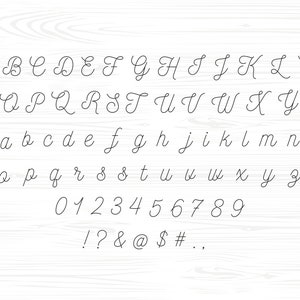 B C D E F G H I J K L
O P Q R S T U V W X Y
a b c d e f g h i j k l m n
o p q r s t u v w x y z
0 1 2 3 4 5 6 7 8 9
! ? & @ $ # . .